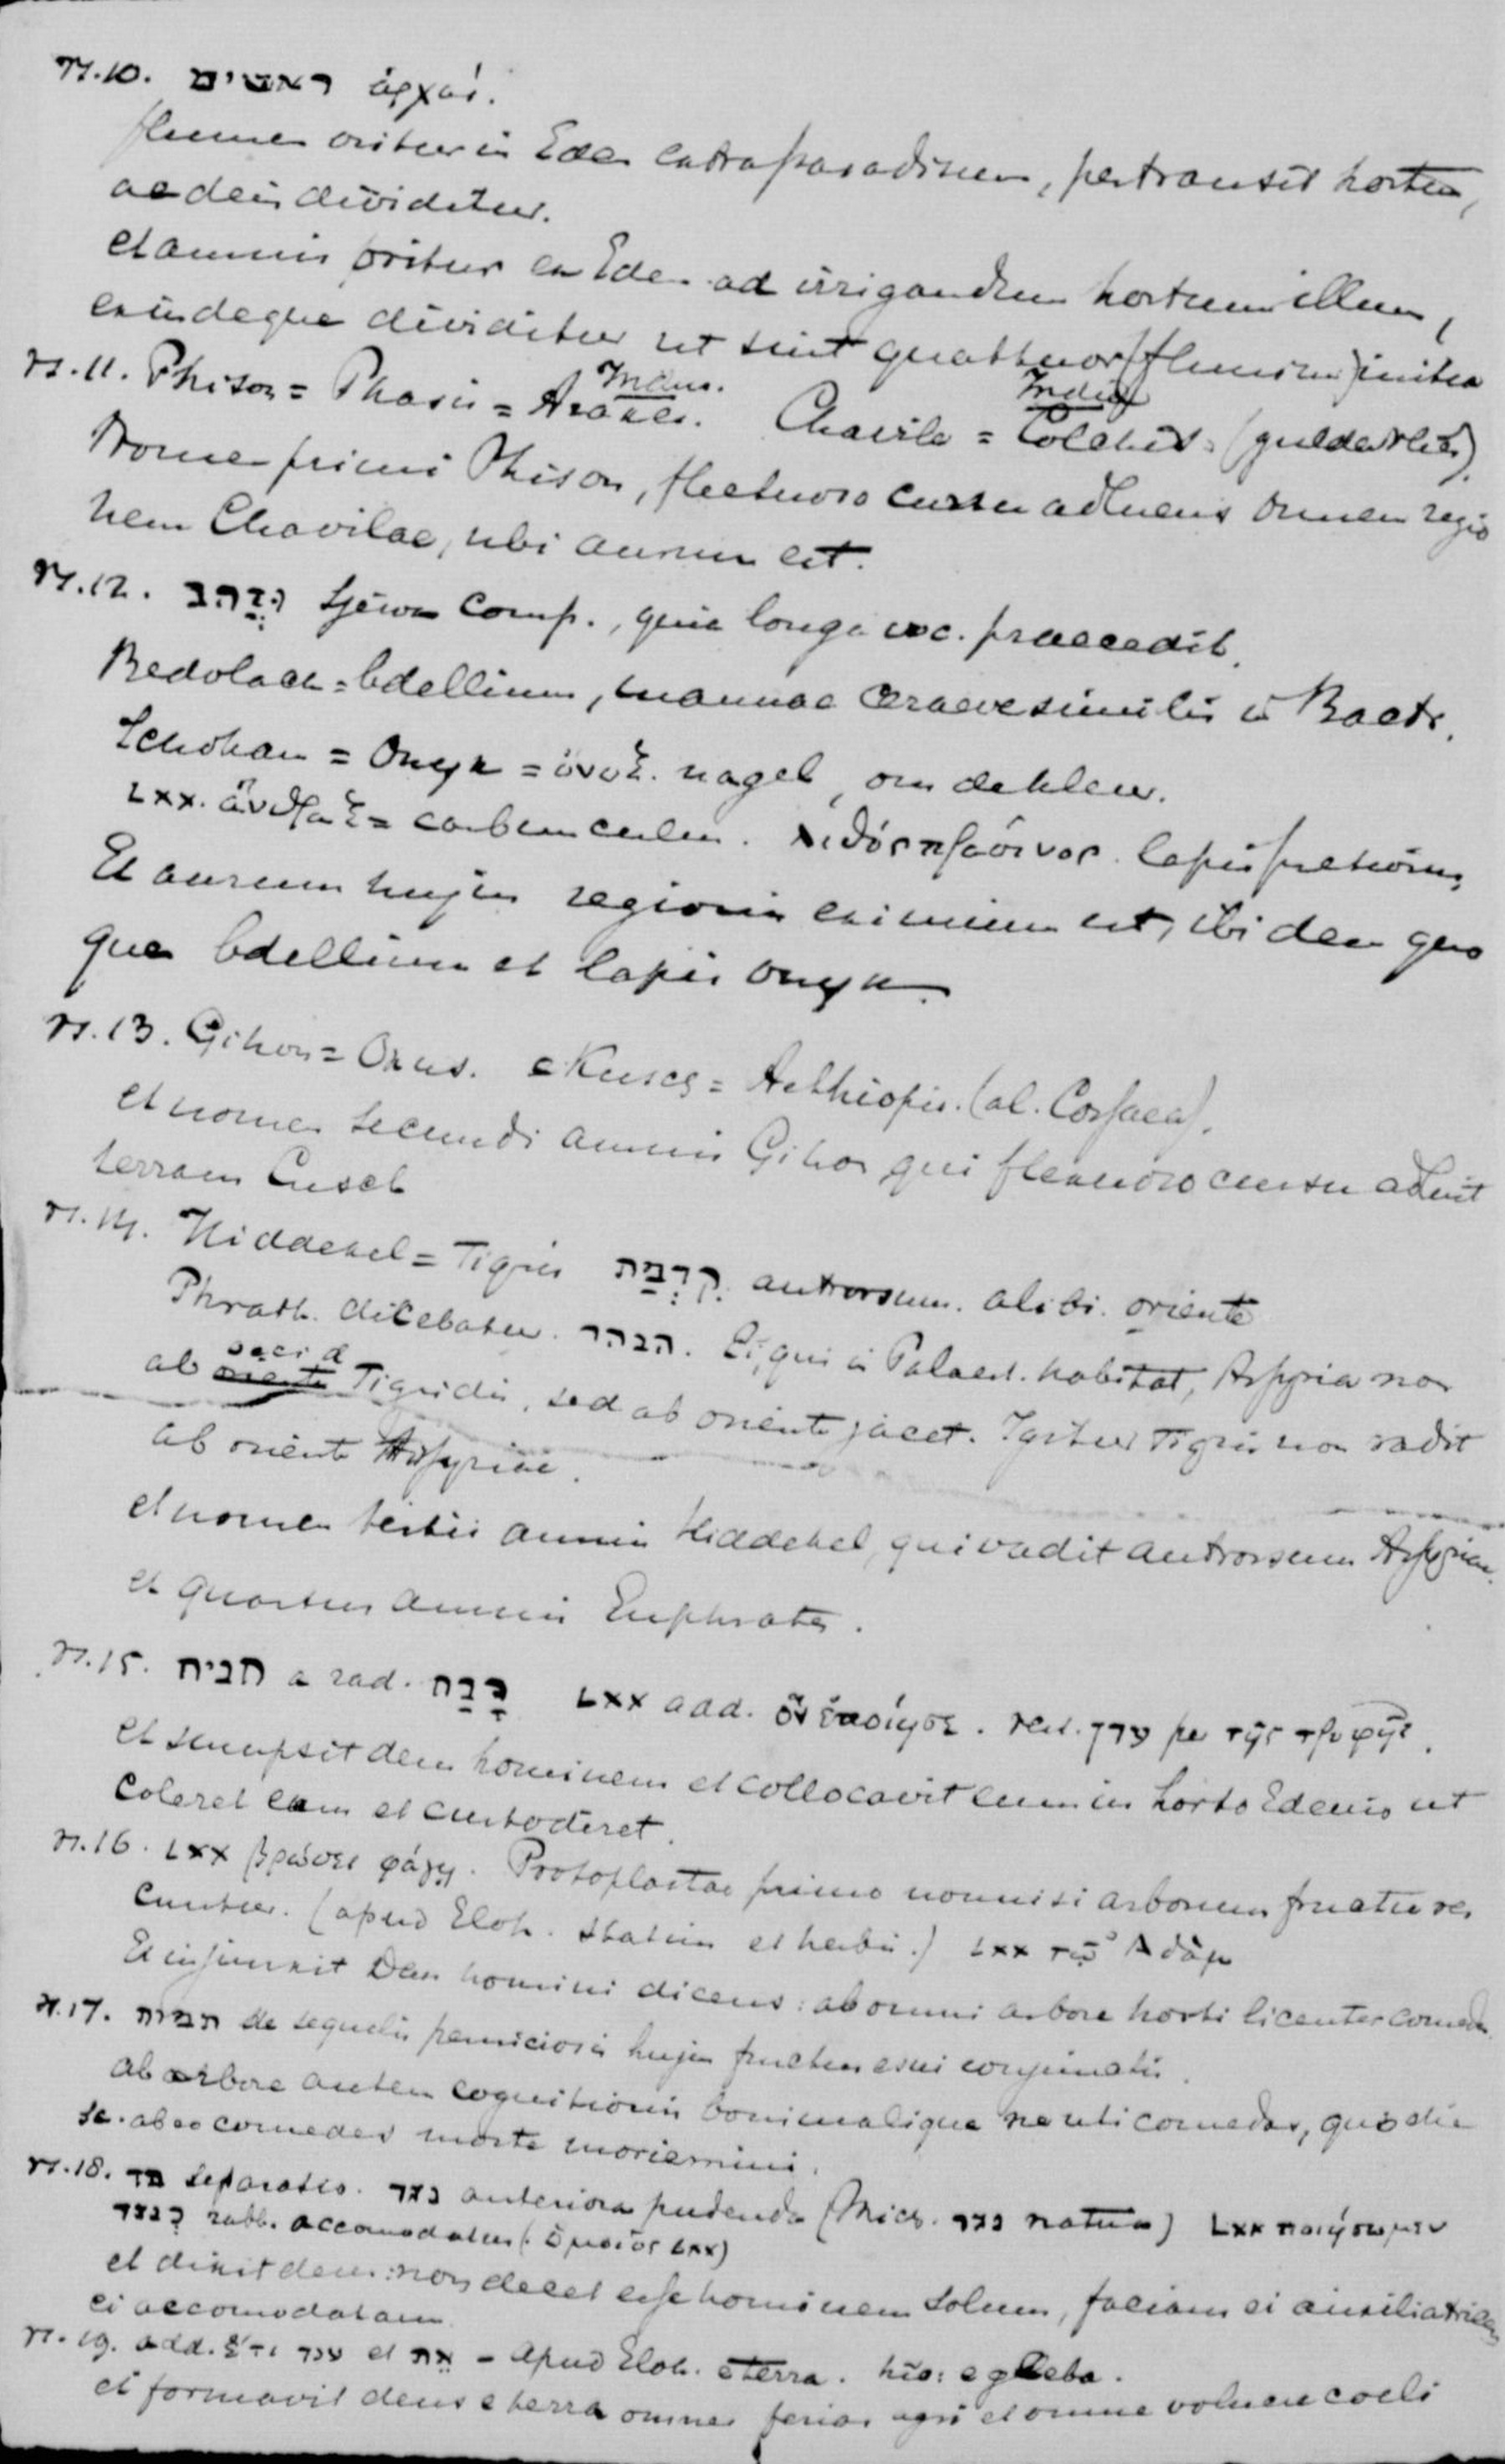 vs. 10. ראשים ἀρχαί.
flumen oritur in Eden extra paradisum, pertransit hortum,
ac dein dividitur.
et amnis oritur ex Eden ad irrigandum hortum illum,
exindeque dividitur ut sint quattuor (fluminum) initia
vs. 11. Phison = Phasis = Araxes. Indus. Chavila = Colchis. India (guldevlies).
Nomen primi Phison, flectuoso cursu adluens omnem regio
nem Chavilae, ubi aurum est.
vs. 12. וּזֲהַב Sjewa comp., quia longa voc. praecedit.
Bedolach = bdellium, mannae similis in Bactr.
Schoham = Onyx = ὄνυξ. nagel, om de kleur.
LXX. ἄνθραξ = carbunculum. λιθος πράσινος. lapis pretiosus,
Et aurum hujus regionis eximium est, ibidem quo
que bdellium et lapis onyx.
vs. 13. Gihon = Oxus. Kusch = Aethiopia. (al. Cossaea).
et nomen secundi amnis Gihon qui flexuoso cursu adluit
terram Cusch
vs. 14. Hiddekel = Tigris קִדְמַת antrorsum. alibi. oriente
Phrath. dicebatur. הנהר. Ei, qui in Palaest. habitat, Assyria non
ab occid Tigridis, sed ab oriente jacet. Igitur Tigris non vadit
ab oriente Assyriae.
et nomen tertii amnis Hiddekel, qui vadit antrorsum Assyriam.
et quartus amnis Euphrates.
vs. 15. הניח a rad. נוח LXX add. ὃν ἔποίησε. vert. עדן per τῆς τρυφῆς.
et sumpsit deus hominem et collocavit eum in horto Edenis ut
coleret eum et custodiret.
vs. 16. LXX βρώσει φάγῃ. Protoplastae primo nonnisi arborum fructu ves
cuntur. (apud Eloh. statim et herbis.) LXX τῷ Ἀδάμ
Et injunxit Deus homini dicens: ab omni arbore horti licenter comedes
vs. 17. de sequelis perniciosis hujus fructus esui conjunctis.
ab arbore autem cognitionis boni malique ne uti comedas, quo die
sc. ab eo comedes morte moriemini.
vs. 18. בד separatio. נגד anteriora pudenda (Misch. נגד natura) LXX ποιήσωμεν
כנגד rabb. accomodatus (ὅμοιος LXX)
et dixit deus: non decet esse hominem solum, faciam ei auxiliatricem
ei accomodatam.
vs. 19. add. עוד et את – apud Eloh. e terra. hic: e gleba.
et formavit deus e terra omnes feras agri et omne volucre coeli